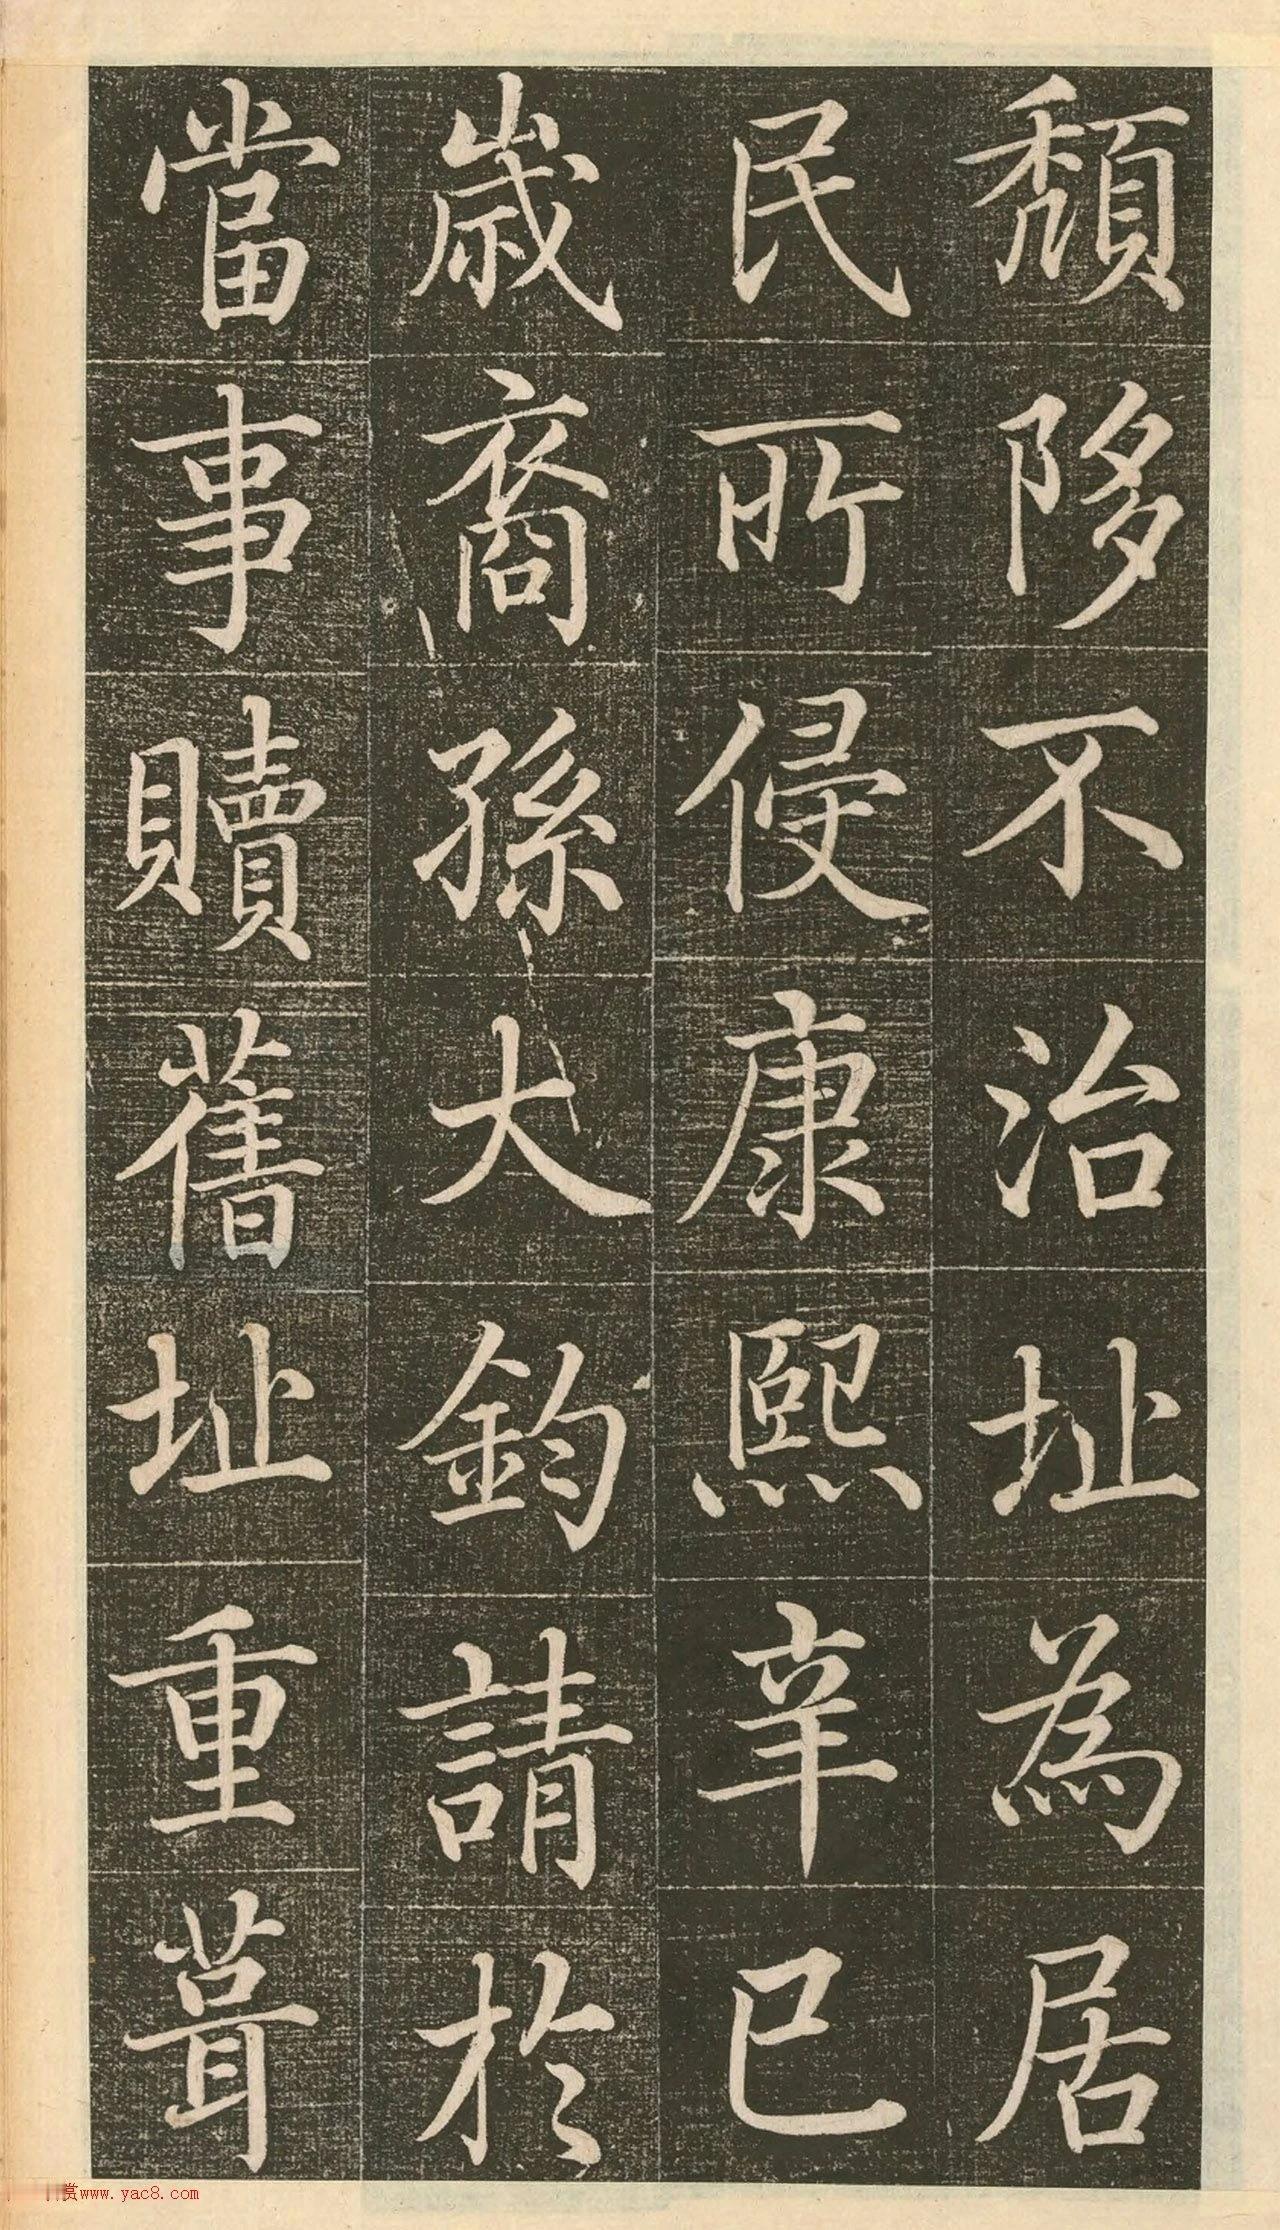 頹陊不治址為居
民所侵康熙辛巳
歲裔孫大鈞請於
當事贖舊址重葺
赏www.yac8.com